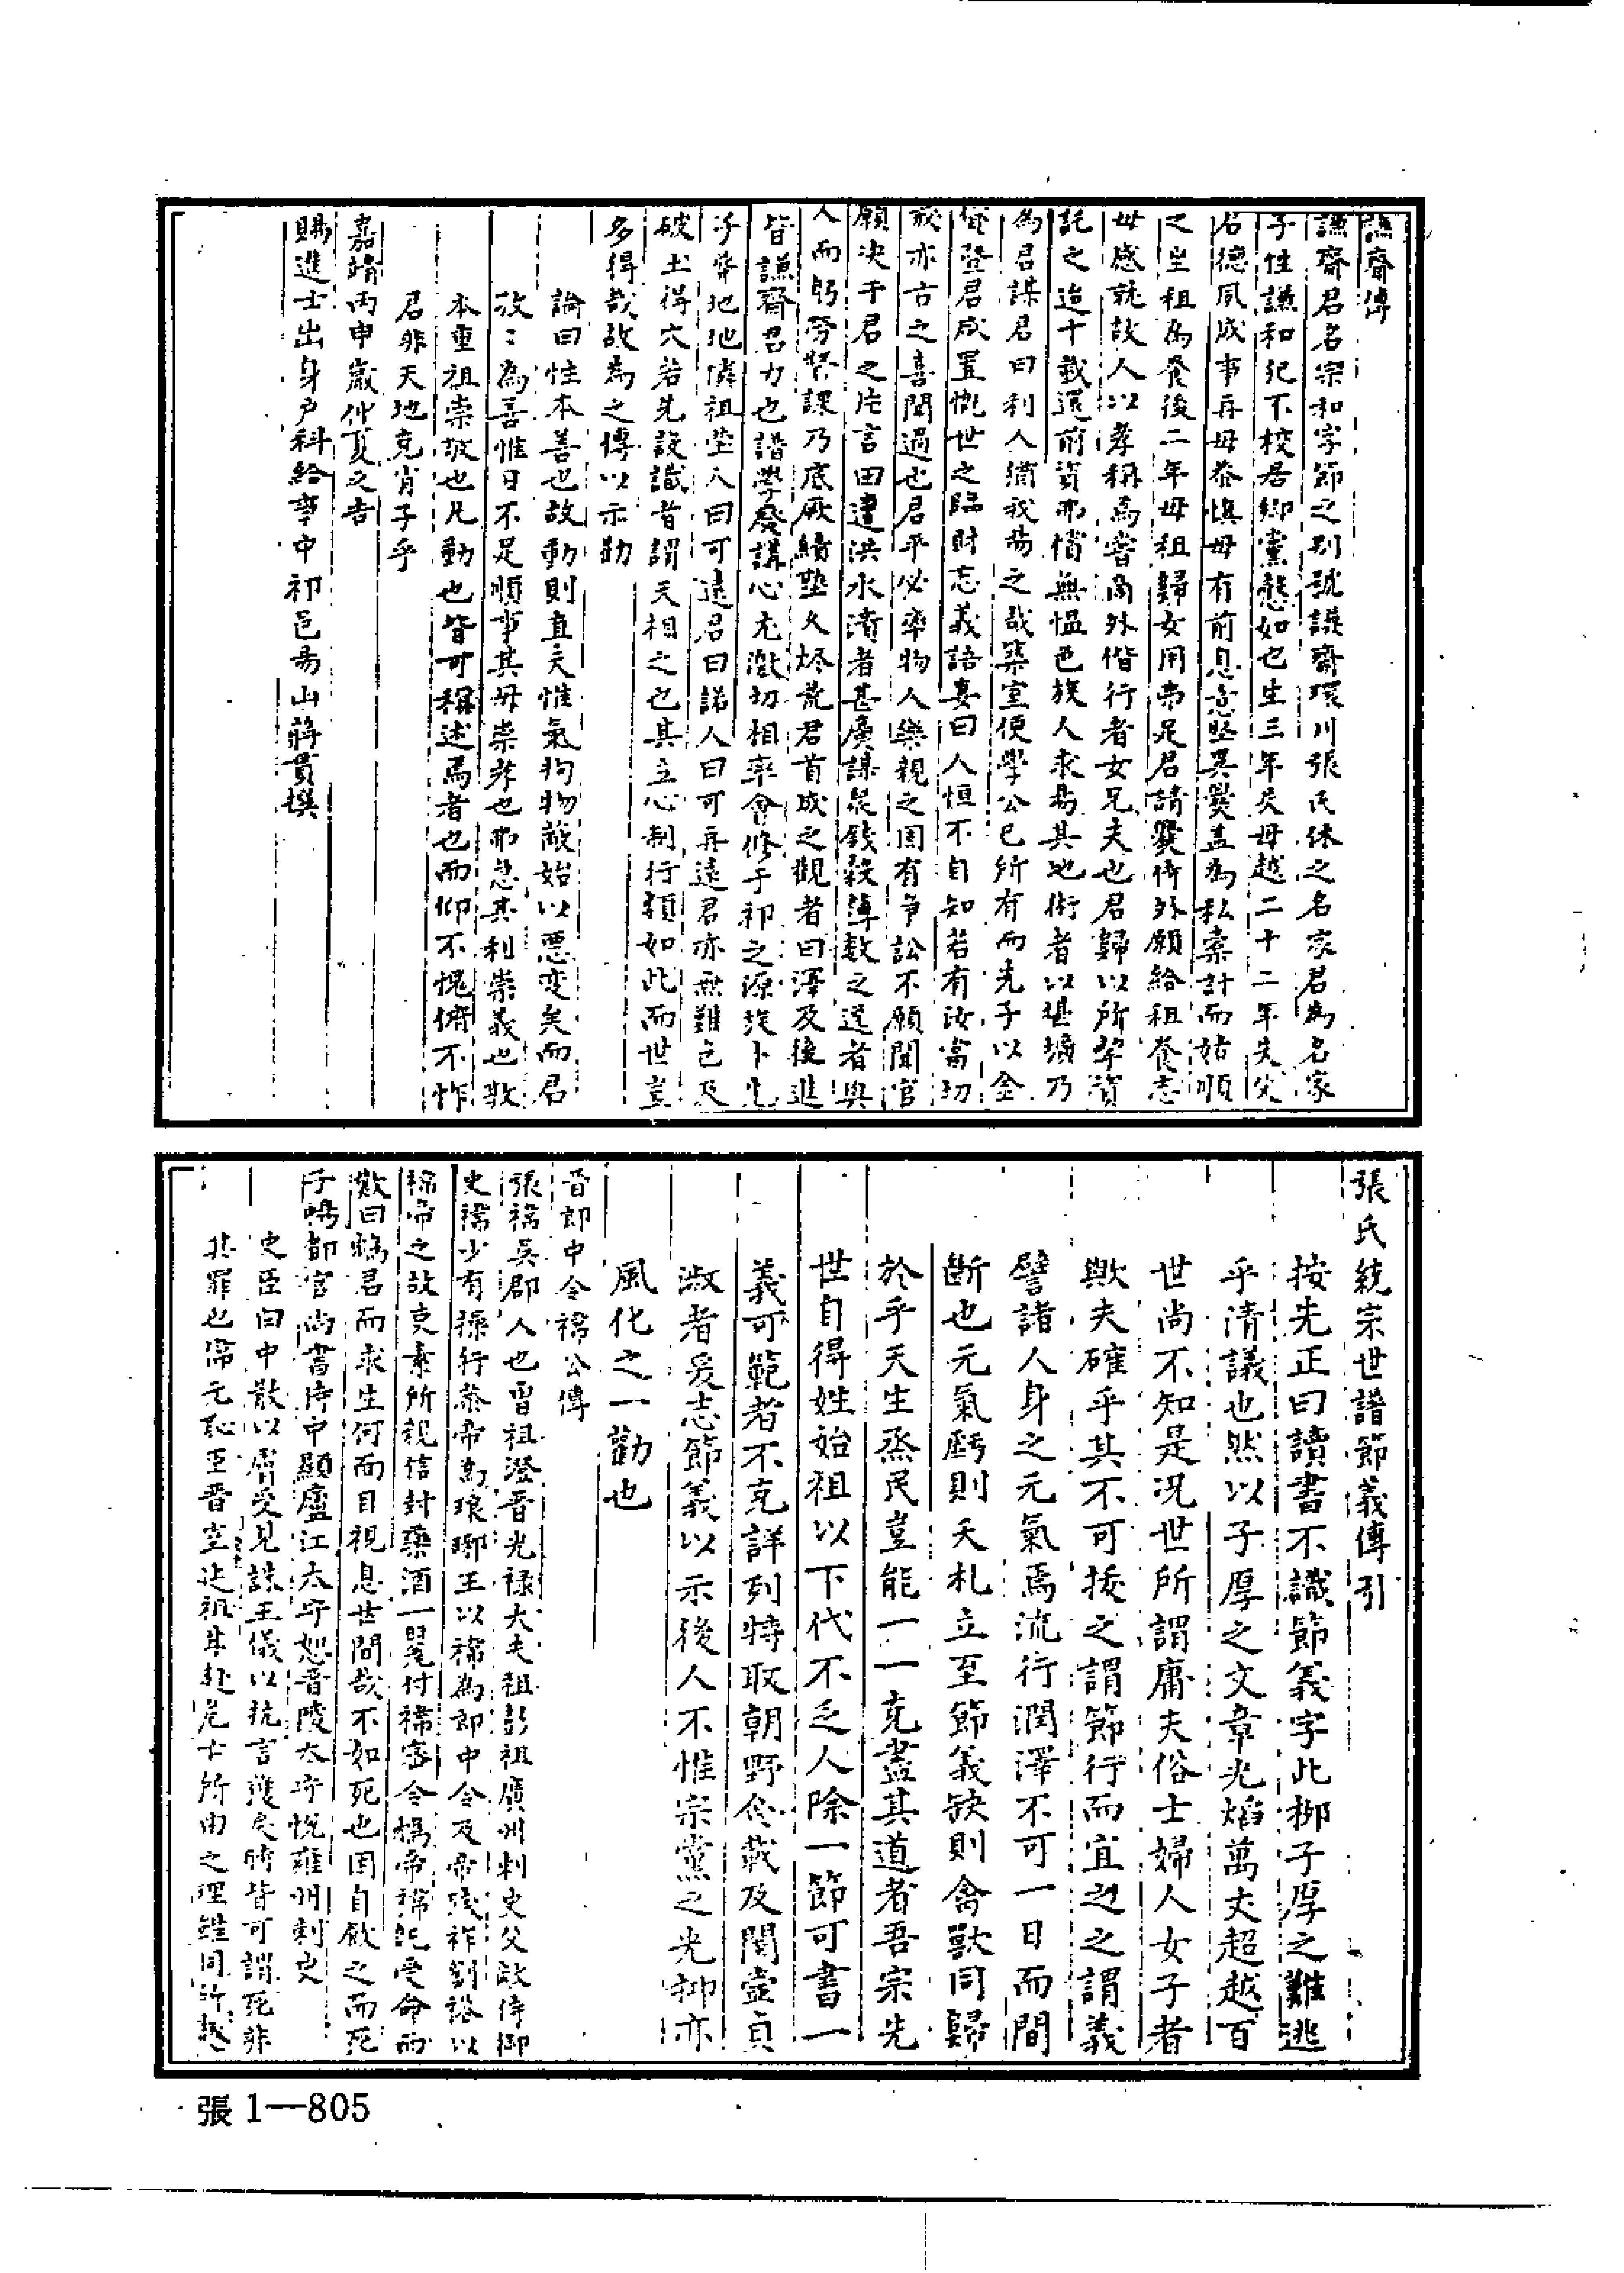 謙齋傳
謙齋君名宗和字節之別號謙齋環川張氏休之名家君為名家
子性謙和犯不校居鄉黨懇如也生三年失母越二十二年失父
君德夙成事再母恭慎母有前息意堅異爨蓋為私橐計而姑順
之坐祖為養後二年母祖歸女用弗足君請爨侍外願給祖養志
母感就故人以孝稱焉嘗商外偕行者女兄夫也君歸以所挈資
託之迨十載還前資耶悄無慍色族人求易其地術者以堪壙乃
為君謀君曰利人猶我曷之哉築室便學公已所有而先子以金
登君咸置慨世之臨財忘義語妻曰人恒不自知若有汝當切
於亦古之喜聞過也君平必率物人樂親之囯有爭訟不願聞官
願决于君之片言田遭洪水漬者甚廣謀畏錢穀簿數之逞者與
人而躬勞督課乃底厥績墊久烬荒君首成之觀者曰澤及後進
皆謙齋君力也譜學廢講心尤激切相率會修于祁之源族卜先
子塋地地憐祖塋人曰可遠君曰諾人曰可再遠君亦無難色及
破土得穴若先設識者謂天相之也其立心制行類如此而世豈
多得哉故為之傳以示勸
論曰性本善也故動則直夫惟氣拘物蔽始以惡变矣而君
孜孜為善惟日不足順事其母崇孝也耶怠其利崇義也敬
本重祖崇敬也凡動也皆可稱述焉者也而仰不愧俯不怍
君非天地克肖子乎
嘉靖丙申歲仲夏之吉
賜進士出身户科給事中祁邑昜山蔣貫撰
張氏統宗世譜節義傳引
按先正曰讀書不識節義字此栁子厚之難逃
乎清議也然以子厚之文章光熖萬丈超越百
世尚不知是况世所謂庸夫俗士婦人女子者
歟夫確乎其不可㧞之謂節行而宜之之謂義
譬諸人身之元氣焉流行潤澤不可一日而間
斷也元氣虧則夭札立至節義缺則禽獸同歸
於乎天生烝民豈能一一克盡其道者吾宗先
世自得姓始祖以下代不乏人除一節可書一
義可範者不克詳列特取朝野僉載及閨壼貞
淑者爰志節義以示後人不惟宗黨之光抑亦
風化之一勸也
晋郎中令禕公傳
張禕吳郡人也曾祖澄晋光禄大夫祖彭祖廣州刺史父敞侍御
史禕少有操行恭帝為琅琊王以禕為郎中令及帝踐祚劉裕以
禕帝之故吏素所親信封藥酒一甖付禕密令鴆帝禕旣受命而
歎曰鴆君而求生何面目視息世間哉不如死也因自飲之而死
子暢都官尚書侍中顯廬江太守恕晋陵太守恱雍州刺史
史臣曰中散以膚受見誅王儀以抗言獲戾時皆可謂死非
其罪也偉元耻臣晋室延祖甘赴危亡所由之理雖同所趍
張1—805